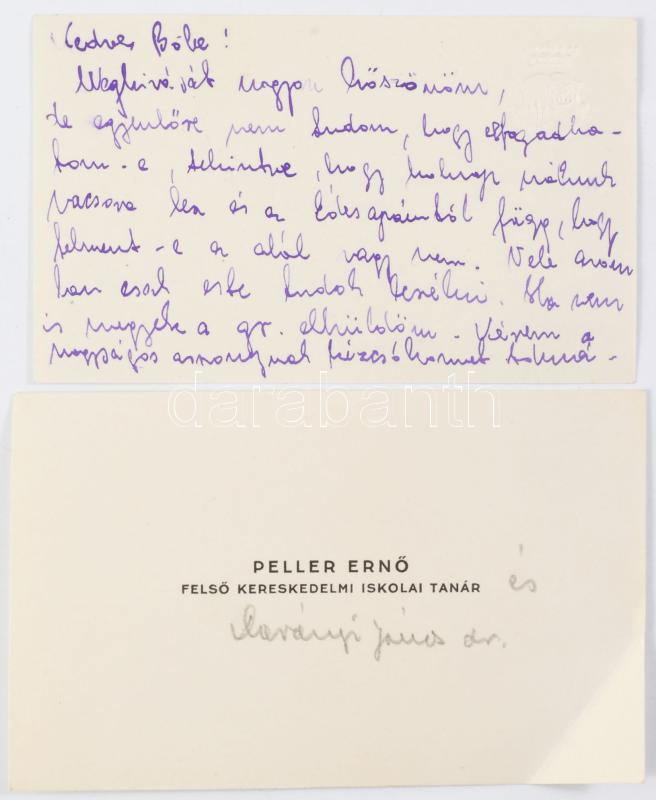 Kedves Bőbe!
Meghívását nagyon köszönöm,
de egyenlőre nem tudom, hogy elfogadha-
tom-e, tekintve, hogy holnap nálunk
vacsora lesz és az Édesapámtól függ, hogy
felment-e az alól vagy nem. Vele azon
ban csak este tudok beszélni. Ha nem
is megyek a gr. elküldöm. Kérem a
nagyságos asszonynak kézcsókomat
darabanth
PELLER ERNŐ
FELSŐ KERESKEDELMI ISKOLAI TANÁR és
János dr.